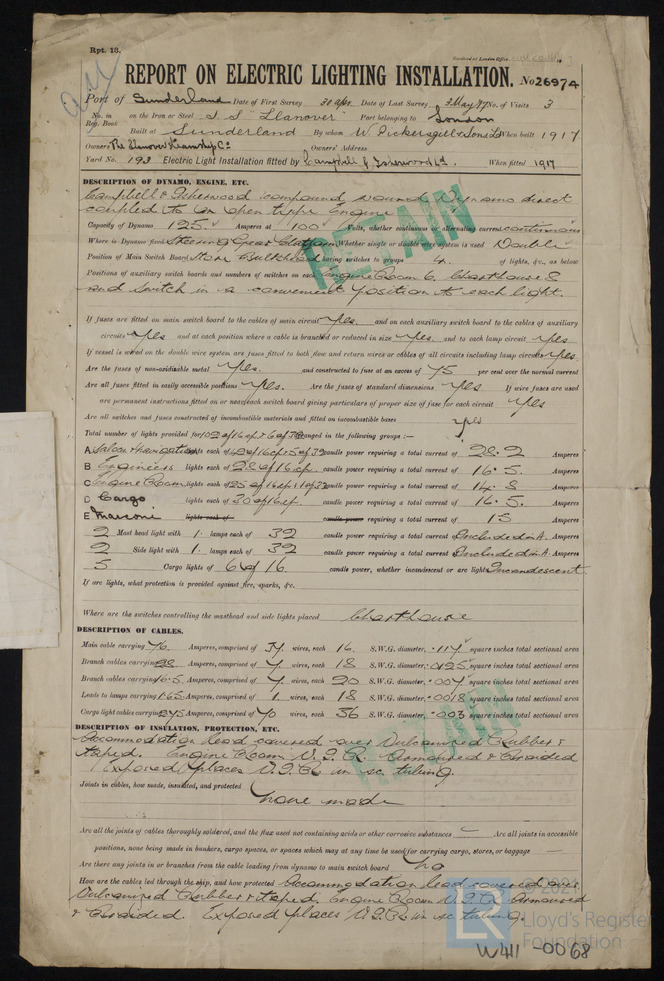 Rpt. 13.
REPORT ON ELECTRIC LIGHTING INSTALLATION. No 26974
Port of Sunderland Date of First Survey 30 Apr Date of Last Survey 3 May 17 No. of Visits 3
No. in Reg. Book on the Iron or Steel S S "Llanover" Port belonging to London
Built at Sunderland By whom W. Pickersgill & Sons Ld When built 1917
Owners The Llanover Steamship Co Owners' Address
Yard No. 193 Electric Light Installation fitted by Campbell & Isherwood Ld. When fitted 1917
DESCRIPTION OF DYNAMO, ENGINE, ETC.
Campbell & Isherwood compound wound Dynamo direct
coupled to an open type Engine
Capacity of Dynamo 125 Amperes at 100 Volts, whether continuous or alternating current continuous
Where is Dynamo fixed Steering Gear Platform Whether single or double wire system is used Double
Position of Main Switch Board Stone Bulkhead having switches to groups 4 of lights, &c., as below
Positions of auxiliary switch boards and numbers of switches on each Engine Room 6, Charthouse 8
and switch in a convenient position to each light.
RETAIN
If fuses are fitted on main switch board to the cables of main circuit Yes. and on each auxiliary switch board to the cables of auxiliary
circuits Yes and at each position where a cable is branched or reduced in size Yes and to each lamp circuit Yes.
If vessel is wired on the double wire system are fuses fitted to both flow and return wires or cables of all circuits including lamp circuits Yes
Are the fuses of non-oxidizable metal Yes. and constructed to fuse at an excess of 75 per cent over the normal current
Are all fuses fitted in easily accessible positions Yes. Are the fuses of standard dimensions Yes If wire fuses are used
are permanent instructions fitted on or near each switch board giving particulars of proper size of fuse for each circuit Yes
Are all switches and fuses constructed of incombustible materials and fitted on incombustible bases Yes
Total number of lights provided for 102 of 16cp & 6 of 32 arranged in the following groups :—
A Saloon & Navigation lights each of 42 of 16cp & 5 of 32 candle power requiring a total current of 28.2 Amperes
B Engineers lights each of 28 of 16cp. candle power requiring a total current of 16.5. Amperes
C Engine Room lights each of 25 of 16cp & 1 of 32 candle power requiring a total current of 14.8 Amperes
D Cargo lights each of 30 of 16cp. candle power requiring a total current of 16.5. Amperes
E Marconi lights each of candle power requiring a total current of 15 Amperes
2 Mast head light with 1. lamps each of 32 candle power requiring a total current Included in A. Amperes
2 Side light with 1. lamps each of 32 candle power requiring a total current Included in A. Amperes
5 Cargo lights of 6 of 16. candle power, whether incandescent or arc lights Incandescent.
If arc lights, what protection is provided against fire, sparks, &c.
Where are the switches controlling the masthead and side lights placed Charthouse
DESCRIPTION OF CABLES.
Main cable carrying 76. Amperes, comprised of 37 wires, each 16. S.W.G. diameter, .117 square inches total sectional area
Branch cables carrying 28 Amperes, comprised of 7 wires, each 18 S.W.G. diameter, .0125 square inches total sectional area
Branch cables carrying 16.5 Amperes, comprised of 7 wires, each 20 S.W.G. diameter, .007 square inches total sectional area
Leads to lamps carrying 1.65 Amperes, comprised of 1 wires, each 18 S.W.G. diameter, .0018 square inches total sectional area
Cargo light cables carrying 2.75 Amperes, comprised of 70 wires, each 36 S.W.G. diameter, .003 square inches total sectional area
DESCRIPTION OF INSULATION, PROTECTION, ETC.
Accommodation lead covered over Vulcanized Rubber &
taped. Engine Room V.I.R. Armoured & Braided
Exposed places V.I.R. in sc. tubing.
RETAIN
Joints in cables, how made, insulated, and protected
None made
Are all the joints of cables thoroughly soldered, and the flux used not containing acids or other corrosive substances — Are all joints in accessible
positions, none being made in bunkers, cargo spaces, or spaces which may at any time be used for carrying cargo, stores, or baggage —
Are there any joints in or branches from the cable leading from dynamo to main switch board No
How are the cables led through the ship, and how protected Accommodation lead covered over
Vulcanized Rubber & taped. Engine Room V.I.R. Armoured
& Braided. Exposed places V.I.R. in sc. tubing.
© 2021
LR
Lloyd's Register
Foundation
W411-0068